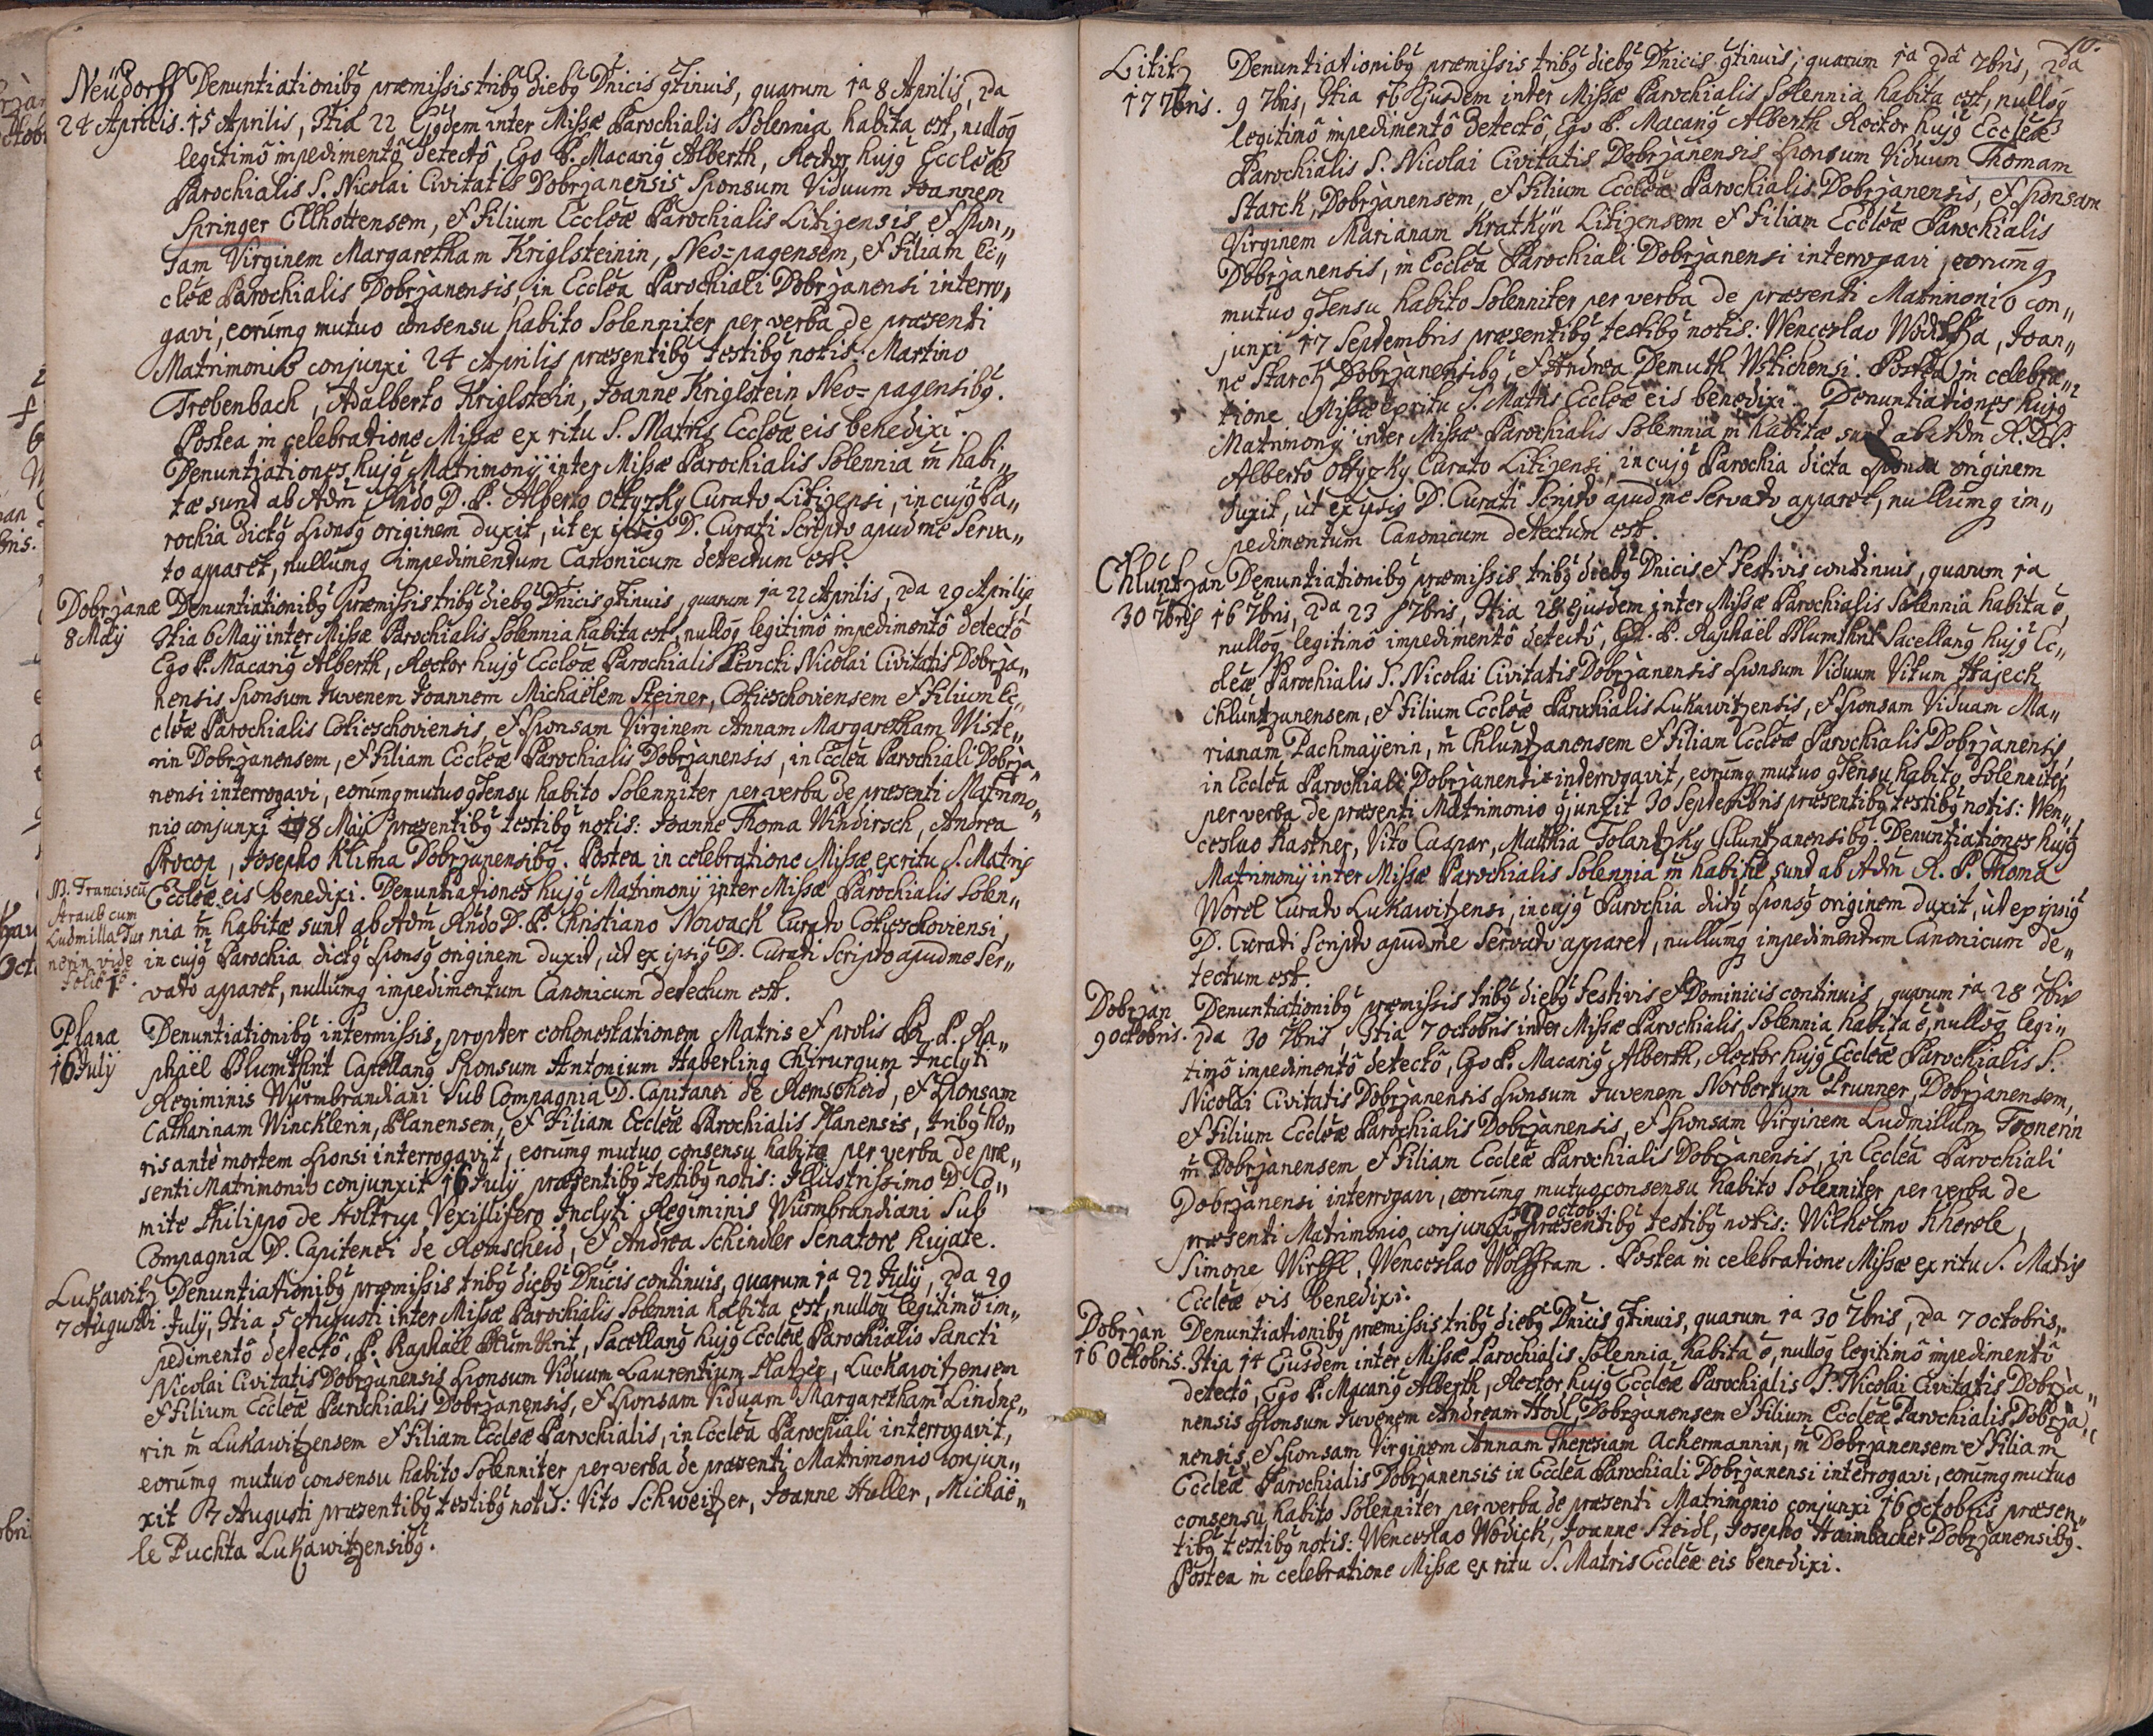 Neüdorff Denuntiationibg præmissis tribg diebg Dnicis gtinuis, quarum 1a 8 Aprilis, 2da
24 Aprilis. 15 Aprilis, 3tia 22 Ejgdem inter Missæ Parochialis Solennia habita est, nullog
legitimô impedimentô detectô, Ego P. Macarig Alberth, Rector hujg Eccleæ
Parochialis S. Nicolai Civitatis Dobrzanensis Sponsum Viduum Joannem
Springer Ellhottensem, et Filium Eccleæ Parochialis Litizensis, et Spon„
sam Virginem Margaretham Kriglsteinin, Neo=pagensem, et Filiam Ec„
cleæ Parochialis Dobrzanensis, in Scclea Parochiali Dobrzanensi interro„
gavi, eorumq mutuo consensu habito Solenniter per verba de præsenti
Matrimonio conjunxi 24 Aprilis præsentibg testibg notis: Martino
Trebenbach, Adalberto Kriglstein, Joanne Kriglstein Neo=pagensibg.
Postea in celebratione Missæ ex ritu S. Matris Eccleæ eis benedixi.
Denuntiationes hujg Matrimonij inter Missæ Parochialis Solennia m habi„
tæ sunt ab Adm Rndo D. P. Alberto Ottyzky Curato Litizensi, in cujg Pa„
rochia dictg Sponsg originem duxit, ut ex ipsig D. Curati Scripto apud me Serva„
to apparet, nullumq impedimentum Canonicum detectum est.
Dobrzanæ Denuntiationibg præmissis tribg diebg Dnicis gtinuis, quarum 1a 22 Aprilis, 2da 29 Aprilis,
8 Maij 3tia 6 Maij inter Missæ Parochialis Solennia habita est, nullog legitimô impedimentô detectô
Ego P. Macarig Alberth, Rector hujg Eccleæ Parochialis Sancti Nicolai Civitatis Dobrza„
nensis Sponsum Juvenem Joannem Michaëlem Steiner, Cotieschoviensem et Filium Ec„
cleæ Parochialis Cotieschoviensis, et Sponsam Virginem Annam Margaretham Wiste„
rin Dobrzanensem, et Filiam Eccleæ Parochialis Dobrzanensis, in Ecclea Parochiali Dobrza„
nensi interrogavi, eorumq mutuo gsensu habito Solenniter per verba de præsenti Matrimo„
nio conjunxi 8 Maij præsentibg testibg notis: Joanne Thoma Windirsch, Andrea
Procop, Josepho Klima Dobrzanensibg. Postea in celebratione Missæ ex ritu S. Matris
Eccleæ eis benedixi. Denuntiationes hujg Matrimonij inter Missæ Parochialis Solen„
nia m habitæ sunt ab Adm Rndo D. P. Christiano Nowack Curato Cotieschoviensi,
in cujg Parochia dictg Sponsg originem duxit, ut ex ipsig D. Curati Scripto apud me Ser„
vato apparet, nullumq impedimentum Canonicum detectum est.
N. Franciscu
Straub cum
Ludmilla Tur
nerin vide
folio
Plana Denuntiationibg intermissis, propter cohonestationem Matris et prolis R. P. Ra„
16 Julij phaël Plumthrit Capellang Sponsum Antonium Haberling Chirurgum Inclyti
Regiminis Würmbrandiani Sub Compagnia D. Capitanei de Remscheid, et Sponsam
Catharinam Wincklerin, Planensem, et Filiam Eccleæ Parochialis Planensis, tribg ho„
ris ante mortem Sponsi interrogavit, eorumq mutuo consensu habito per verba de præ„
senti Matrimonio conjunxit 16 Julij præsentibg testibg notis: Illustrissimo D. Co„
mite Philippo de Holtrup Vexillifero Inclyti Regiminis Würmbrandiani Sub
Compagnia D. Capitenei de Remscheid, et Andrea Schindler Senatore hujate.
Lukawitz Denuntiationibg præmissis tribg diebg Dnicis continuis, quarum 1a 22 Julij, 2da 29
7 Augusti. Julij, 3tia 5 Augusti inter Missæ Parochialis Solennia habita est, nullog legitimô im„
pedimentô detectô, P. Raphaël Plumthrit, Sacellang hujg Eccleæ Parochialis Sancti
Nicolai Civitatis Dobrzanensis Sponsum Viduum Laurentium Platzer, Luckawitzensem
et Filium Eccleæ Parochialis Dobrzanensis, et Sponsam Viduam Margaretham Lindne„
rin m Lukawitzensem et Filiam Eccleæ Parochialis, in Ecclea Parochiali interrogavit,
eorumq mutuo consensu habito Solenniter per verba de præsenti Matrimonio conjun„
xit 7 Augusti præsentibg testibg notis: Vito Schweitzer, Joanne Huller, Michaë„
le Puchta Lukawitzensibg.
10.
Lititz Denuntiationibg præmissis tribg diebg Dnicis gtinuis, quarum 1a 2da 7bris, 2da
17 7bris. 9 7bris, 3tia 16 Ejusdem inter Missæ Parochialis Solennia habita est, nullog
legitimô impedimentô detectô, Ego P. Macarig Alberth Rector hujg Eccleæ
Parochialis S. Nicolai Civitatis Dobrzanensis Sponsum Viduum Thomam
Starck, Dobrzanensem, et Filium Eccleæ Parochialis Dobrzanensis, et Sponsam
Virginem Marianam Kratkijn Litizensem et Filiam Eccleæ Parochialis
Dobrzanensis, in Ecclea Parochiali Dobrzanensi interrogavi, eorumq
mutuo gsensu habito Solenniter per verba de præsenti Matrimonio con„
junxi 17 Septembris præsentibg testibg notis: Wenceslao Wodicka, Joan„
ne Starck Dobrzanensibg, et Andrea Demuth Wstichensi. Postea in celebra„
tione Missæ ex ritu S. Matris Eccleæ eis benedixi. Denuntiationes hujg
Matrimonij inter Missæ Parochialis Solemnia m habitæ sunt ab Adm R. D. P.
Alberto Ottyzky Curato Litizensi, in cujg Parochia dicta Sponsa originem
duxit, ut ex ipsig D. Curati Scripto apud me Servato apparet, nullumq im„
pedimentum Canonicum detectum est.
Chluntzan Denuntiationibg præmissis tribg diebg Dnicis et Festivis continuis, quarum 1a
30 7bris 16 7bris, 2da 23 7bris, 3tia 28 ejusdem inter Missæ Parochialis Solennia habita é,
nullog legitimô impedimentô detectô, P. Raphaël Plumthrit Sacellang hujg Ec„
cleæ Parochialis S. Nicolai Civitatis Dobrzanensis Sponsum Viduum Vitum Hajeck
Chluntzanensem, et Filium Eccleæ Parochialis Lukawitzensis, et Sponsam Viduam Ma„
rianam Pachmaijerin, m Chluntzanensem et Filiam Eccleæ Parochialis Dobrzanensis,
in Ecclea Parochiali Dobrzanensi interrogavit, eorumq mutuo gsensu habito Solenniter
per verba de præsenti Matrimonio gjunxit 30 Septembris præsentibg testibg notis: Wen„
ceslao Kastner, Vito Caspar, Matthia Tolantzky Chluntzanensibg. Denuntiationes hujg
Matrimonij inter Missæ Parochialis Solennia m habitæ sunt ab Adm R. P. Thoma
Worel Curato Lukawitzensi, in cujg Parochia dictg Sponsg originem duxit, ut ex ipsig
D. Curati Scripto apud me Servato apparet, nullumq impedimentum Canonicum de„
tectum est.
Dobrzan Denuntiationibg præmissis tribg diebg Festivis et Dominicis continuis, quarum 1a 28 7bris
9 Octobris. 2da 30 7bris, 3tia 7 Octobris inter Missæ Parochialis Solennia habita é, nullog legi„
timô impedimentô detectô, Ego P. Macarig Alberth, Rector hujg Eccleæ Parochialis S.
Nicolai Civitatis Dobrzanensis Sponsum Juvenem Norbertum Prunner, Dobrzanensem,
et Filium Eccleæ Parochialis Dobrzanensis, et Sponsam Virginem Ludmillam Tronerin
m Dobrzanensem et Filiam Eccleæ Parochialis Dobrzanensis, in Ecclea Parochiali
Dobrzanensi interrogavi, eorumq mutuo consensu habito Solenniter per verba de
9 Octob.
præsenti Matrimonio conjunxi præsentibg testibg notis: Wilhelmo Kherole,
Simone Wirffl, Wenceslao Wolffram. Postea in celebratione Missæ ex ritu S. Matris
Eccleæ eis benedixi.
Dobrzan Denuntiationibg præmissis tribg diebg Dnicis gtinuis, quarum 1a 30 7bris, 2da 7 Octobris,
16 Octobris. 3tia 14 Ejusdem inter Missæ Parochialis Solennia habita é, nullog legitimô impedimentô
detectô, Ego P. Macarig Alberth, Rector hujg Eccleæ Parochialis S. Nicolai Civitatis Dobrza„
nensis Sponsum Juvenem Andream Hodl, Dobrzanensem et Filium Eccleæ Parochialis Dobrza„
nensis, et Sponsam Virginem Annam Theresiam Ackermannin, m Dobrzanensem et Filiam
Eccleæ Parochialis Dobrzanensis in Ecclea Parochiali Dobrzanensi interrogavi, eorumq mutuo
consensu habito Solenniter per verba de præsenti Matrimonio conjunxi 16 Octobris præsen„
tibg testibg notis: Wenceslao Wodick, Joanne Steidl, Josepho Haimbacher Dobrzanensibg.
Postea in celebratione Missæ ex ritu S. Matris Eccleæ eis benedixi.